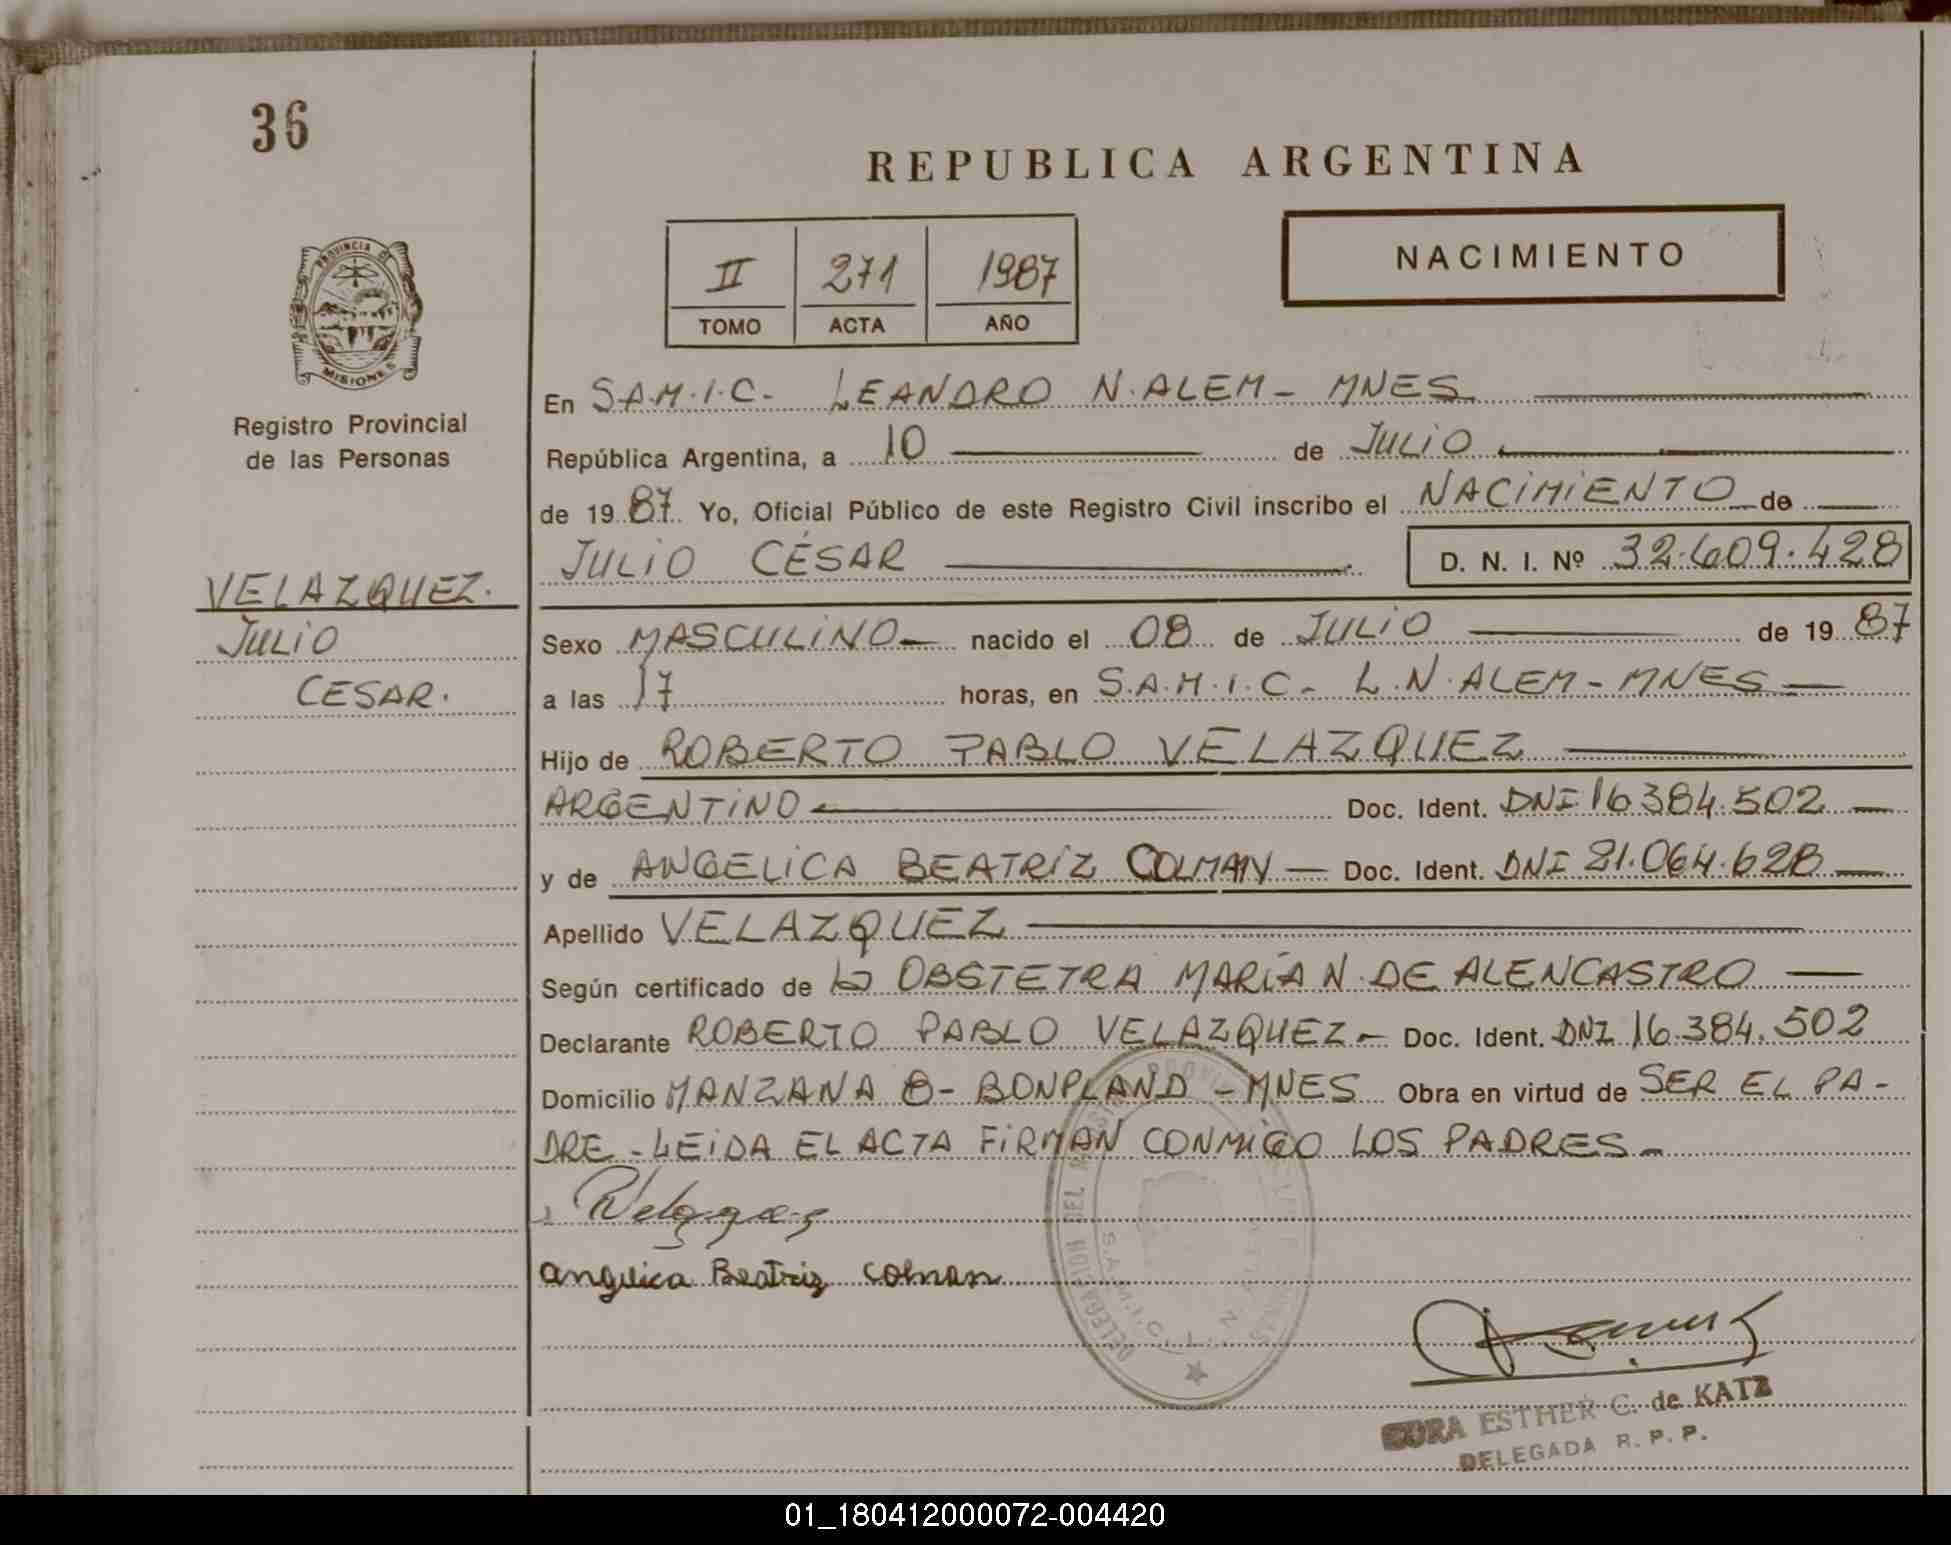 36
REPUBLICA ARGENTINA
NACIMIENTO
II 271 1987
TOMO ACTA AÑO
PROVINCIA DE
MISIONES
Registro Provincial
de las Personas
VELAZQUEZ.
JULIO
CESAR.
En S.A.M.I.C. LEANDRO N. ALEM - MNES
República Argentina, a 10 de JULIO
de 19 87. Yo, Oficial Público de este Registro Civil inscribo el NACIMIENTO de
JULIO CÉSAR D. N. I. Nº 32.609.428
Sexo MASCULINO nacido el 08 de JULIO de 19 87
a las 17 horas, en S.A.M.I.C. L.N. ALEM - MNES
Hijo de ROBERTO PABLO VELAZQUEZ
ARGENTINO Doc. Ident. DNI 16.384.502
y de ANGELICA BEATRIZ COLMAN Doc. Ident. DNI 21.064.628
Apellido VELAZQUEZ
Según certificado de la OBSTETRA MARIA N. DE ALENCASTRO
Declarante ROBERTO PABLO VELAZQUEZ - Doc. Ident. DNI 16.384.502
Domicilio MANZANA 8 - BONPLAND - MNES Obra en virtud de SER EL PA-
DRE - LEIDA EL ACTA FIRMAN CONMIGO LOS PADRES -
RVelazquez
Angelica Beatriz Colman
DELEGACION DEL
S.A.M.I.C. L. N. ALEM
ESTHER C. de KATZ
DELEGADA R. P. P.
01_180412000072-004420